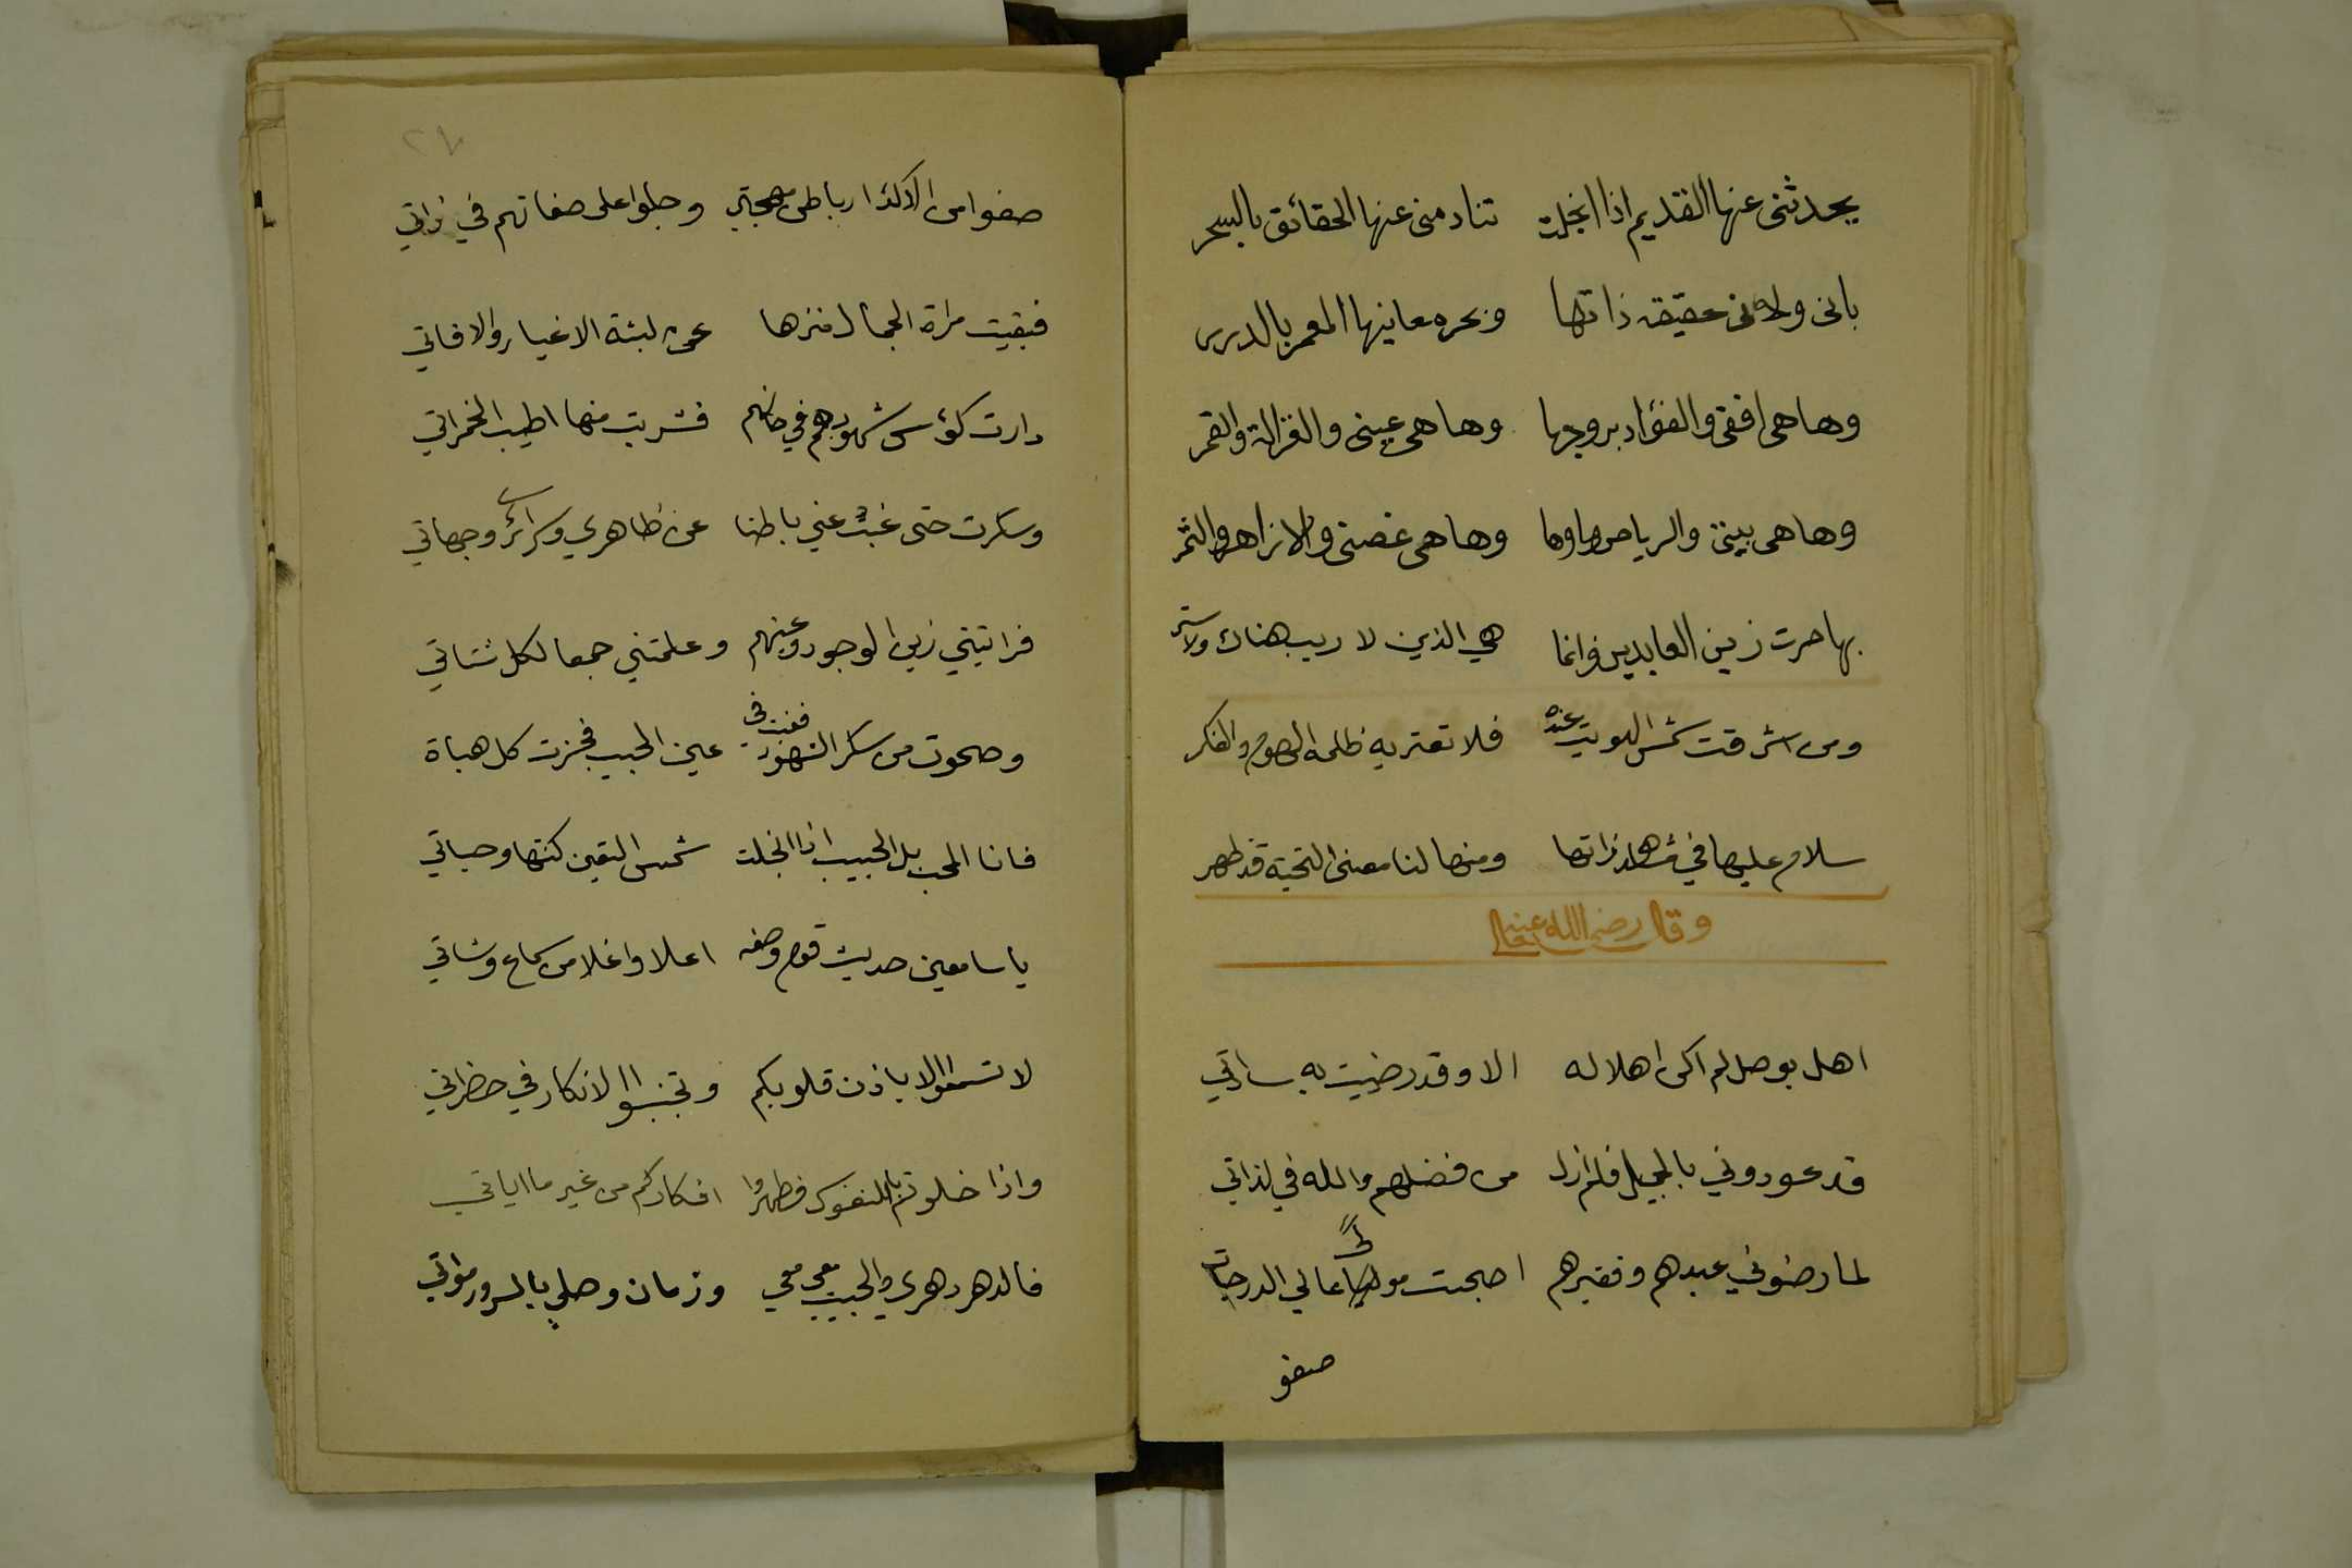 يحدثنى عنها القديم اذا انجلت تنادمنى عنها الحقائق بالسحر
بانى ولانى حقيقة ذاتها وبحر معانيها المعمر بالدرر
وها هى افقى والفؤاد بروجها وها هى عينى والغزالة والقمر
وها هى بيتى والرياض وماوها وها هى غصنى والازاهر والثمر
بها صرت زين العابدين وانما هي الذين لا ريب هناك ولا ستر
ومن اشرقت شمس الهويت عنده فلا تعتريه ظلمه الوهم والفكر
سلام عليها في مشاهد ذاتها ومنها لنا معنى التحية قد ظهر
وقال رضى الله عنه
اهل بوصل لم اكن اهلا له الا وقد رضيت به ساداتي
قد عودوني بالجميل فلم ازل من فضلهم والله في لذاتي
لما رضوني عبدهم وفقيرهم اصبحت مولى عالي الدرجات
صفو
٢٧
صفوا من الاكدار باطن مهجتي وجلوا على صفاتهم في ذاتي
فبقيت مراة الجمال منزها عن لبثة الاغيار والافاتي
دارت كؤس شهودهم في حانهم فشربت منها اطيب الخمراتي
وسكرت حتى غبت عني باطنا عن ظاهري وسرائر وجهاتي
فراتيني زين الوجود وعينهم وعلمتني جمعا لكل شتاتي
وصحوت من سكر الشهود ففت في عين الحبيب فحزت كل هباة
فانا المحب بل الحبيب اذا انجلت شمس اليقين كنتها وحياتي
يا سامعين حديث قوم وصفه اعلا واغلا من سماع وشاتي
لا تسمعوا الا باذن قلوبكم وتجنبوا الانكار في حضراتي
واذا خلوتم بالنفوس فطهروا افكاركم من غير ما اياتي
فالدهر دهري والحبيب معي وزمان وصلي بالسرور مواتي